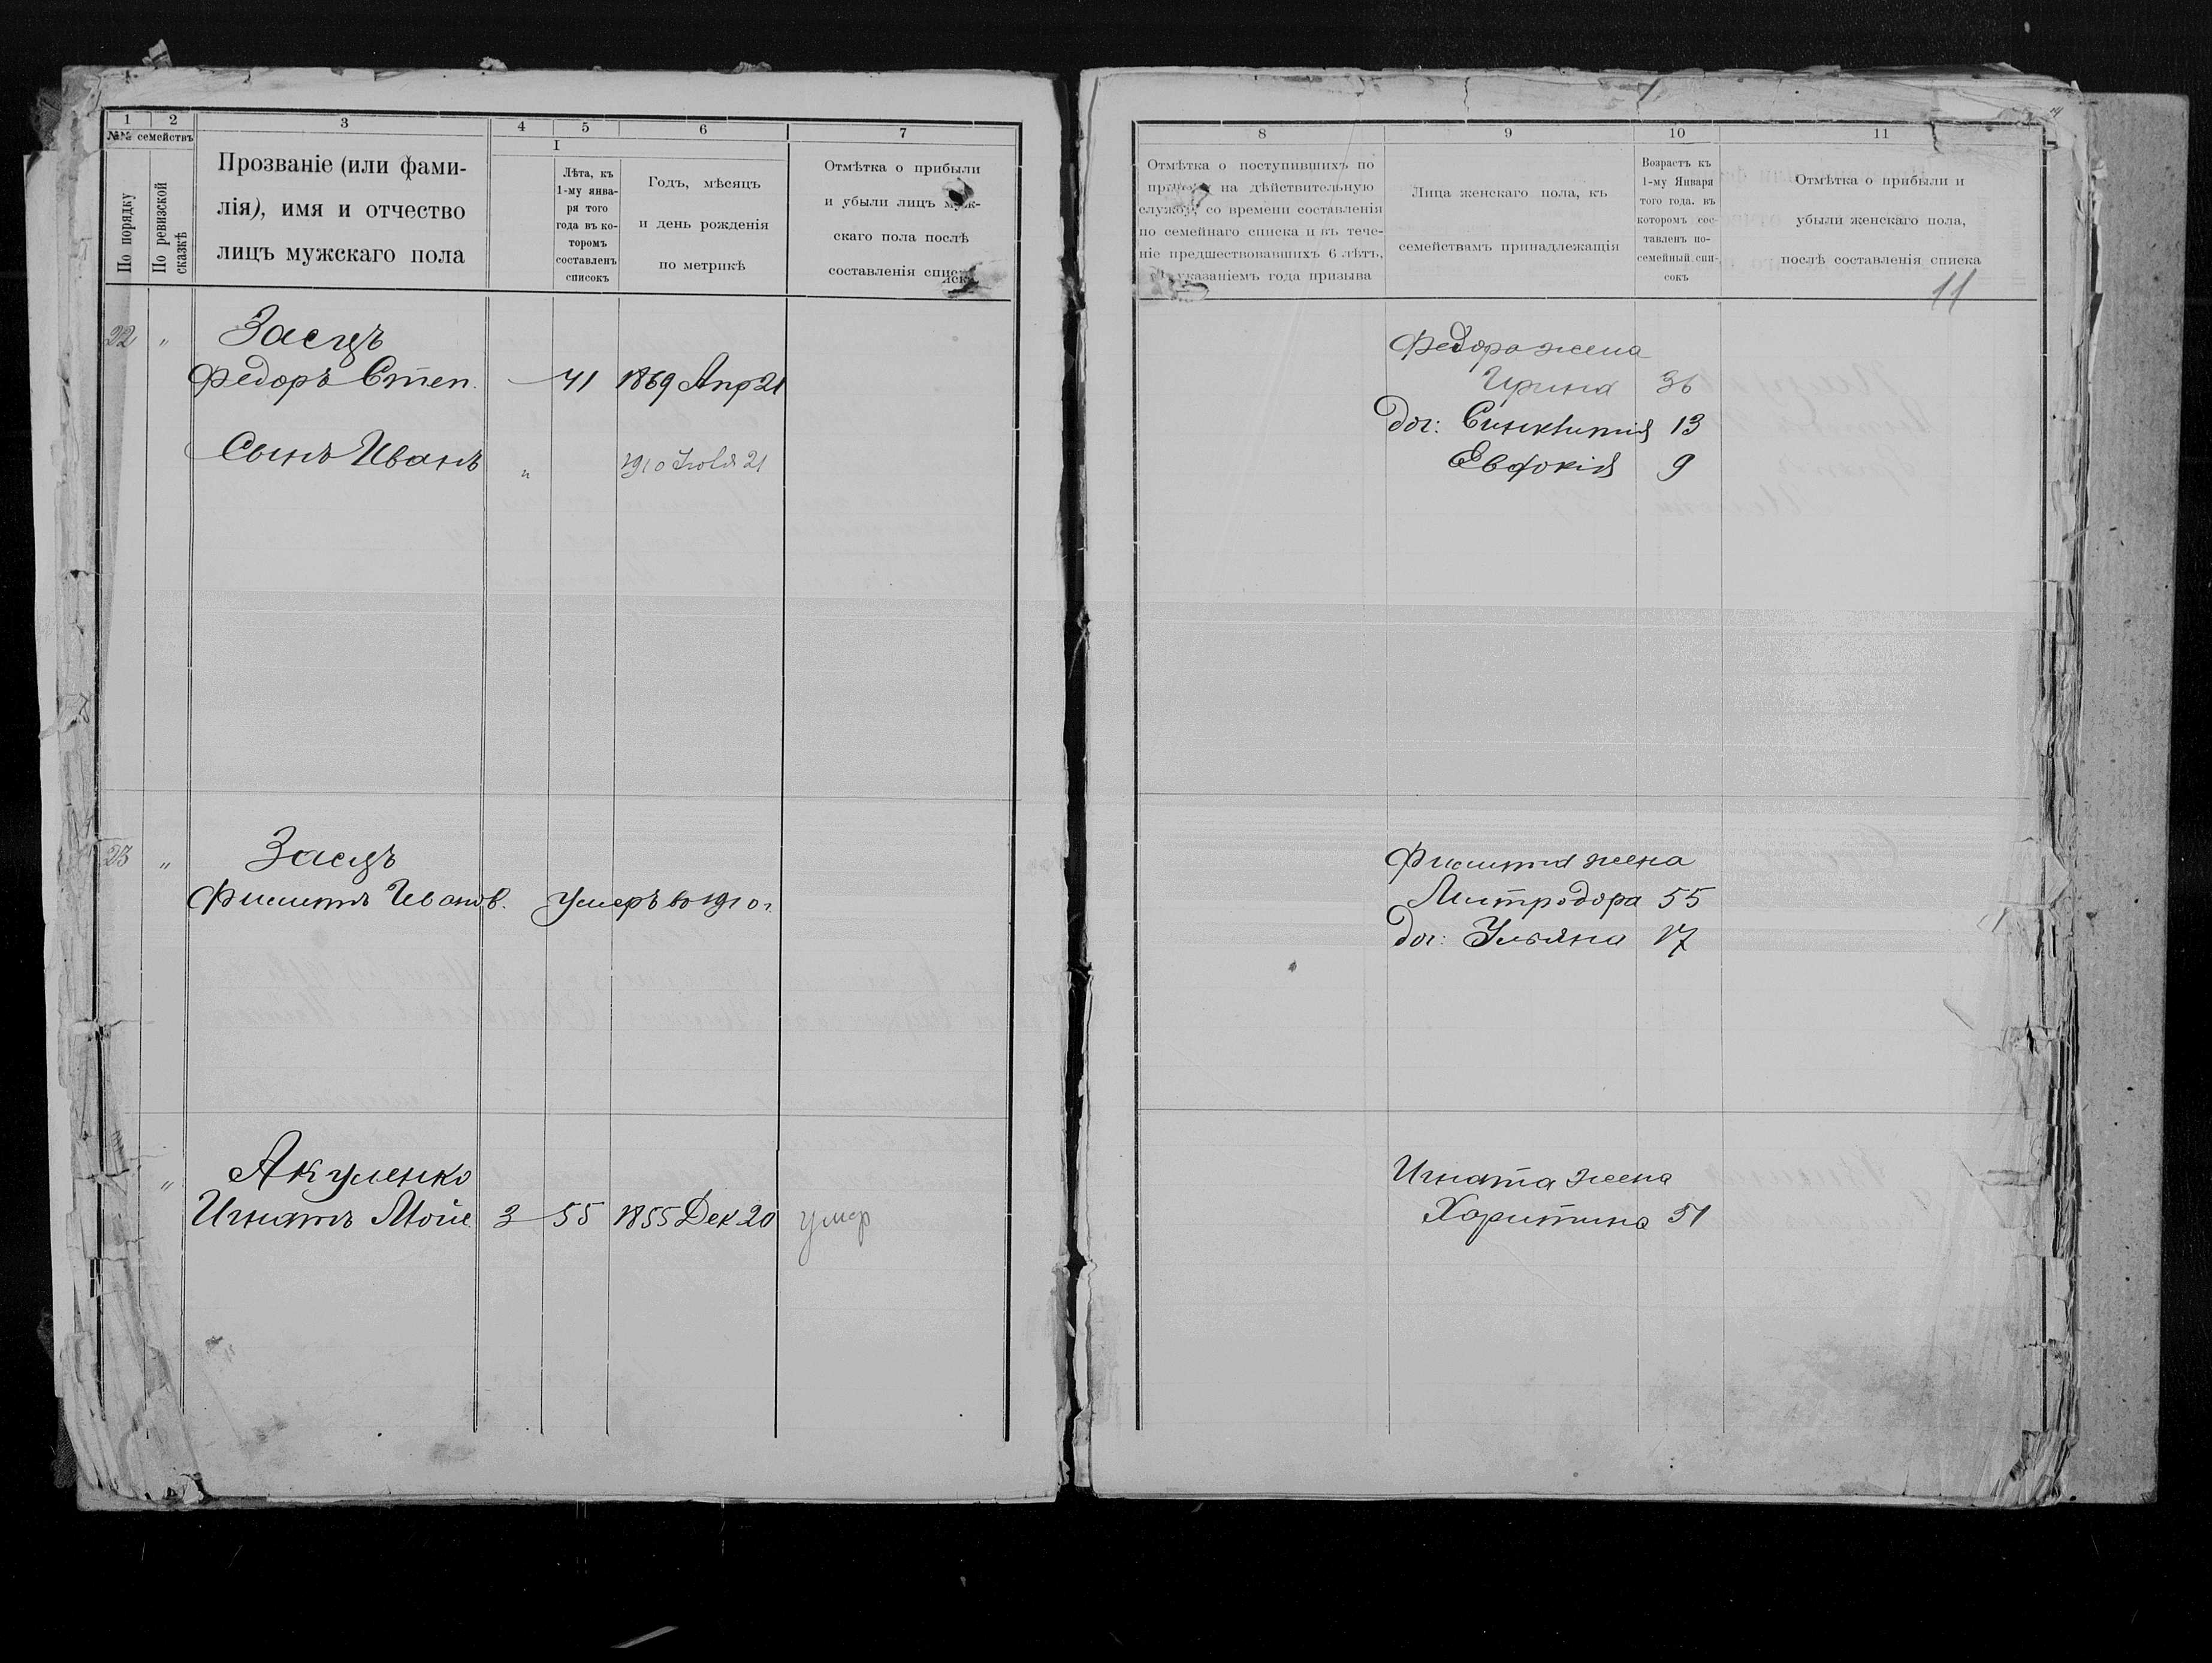 1 2 3 4 5 6 7
№№ семействъ
По порядку
По ревизской сказкѣ
Прозваніе (или фами-
лія), имя и отчество
лицъ мужскаго пола
I
Лѣта, къ
1-му янва-
ря того
года въ ко-
торомъ
составленъ
списокъ
Годъ, мѣсяцъ
и день рожденія
по метрикѣ
Отмѣтка о прибыли
и убыли лицъ муж-
скаго пола послѣ
составленія списка
22 " Заецъ
Федоръ Степ. 41 1869 Апр 21
Сынъ Иванъ " 1910 Іюля 21
23 " Заецъ
Филиппъ Иванов. Умеръ въ 1910 г.
" Акуленко
Игнатъ Мойс. 3 55 1855 Дек 20 умер
8 9 10 11
Отмѣтка о поступившихъ по
призыву на дѣйствительную
службу, со времени составленія
по семейнаго списка и въ тече-
ніе предшествовавшихъ 6 лѣтъ,
указаніемъ года призыва
Лица женскаго пола, къ
семействамъ принадлежащія
Возрастъ къ
1-му Января
того года. въ
которомъ сос-
тавленъ по-
семейный спи-
сокъ
Отмѣтка о прибыли и
убыли женскаго пола,
послѣ составленія списка
11
Федора жена
Ирина 36
Доч: Синклитія 13
Евдокія 9
Филиппа жена
Митродора 55
Доч: Ульяна 17
Игната жена
Харитина 51